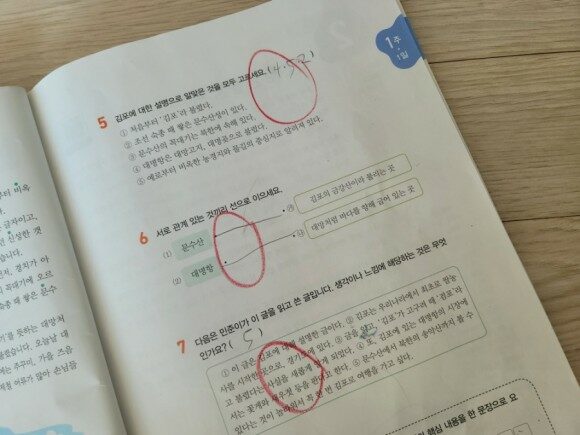 1주
1일
5 김포에 대한 설명으로 알맞은 것을 모두 고르세요. (4, 5, 2)
① 처음부터 '김포'라 불렸다.
② 조선 숙종 때 쌓은 문수산성이 있다.
③ 문수산의 꼭대기는 북한에 속해 있다.
④ 대명항은 대망고지, 대명곶으로 불렸다.
⑤ 예로부터 비옥한 농경지와 물길의 중심지로 알려져 있다.
6 서로 관계 있는 것끼리 선으로 이으세요.
(1) 문수산
㉮ 김포의 금강산이라 불리는 곳
(2) 대명항
㉯ 대망처럼 바다를 향해 굽어 있는 곳
7 다음은 민준이가 이 글을 읽고 쓴 글입니다. 생각이나 느낌에 해당하는 것은 무엇
인가요? (5)
① 이 글은 김포에 대해 설명한 글이다. ② 김포는 우리나라에서 최초로 쌀농
사를 시작한 곳으로, 경기도에 있다. ③ 글을 읽고, '김포'가 고구려 때 '검포'라
고 불렸다는 사실을 새롭게 알게 되었다. ④ 또, 김포에 있는 대명항의 시장에
서는 꽃게와 새우젓 등을 판다고 한다. ⑤ 문수산에서 북한의 송악산까지 볼 수
있다는 것이 놀라워서 꼭 한 번 김포로 여행을 가고 싶다.
핵심 내용을 한 문장으로 요
부터 비옥
글자이고,
신성한 갯
습니다.
적, 경치가 아
의 꼭대기에 오르
숙종 때 쌓은 문수
기'를 뜻하는 대망처
불렸습니다. 오늘날 대
는 주꾸미, 가을 즈음
제철 어류가 많아 손님들